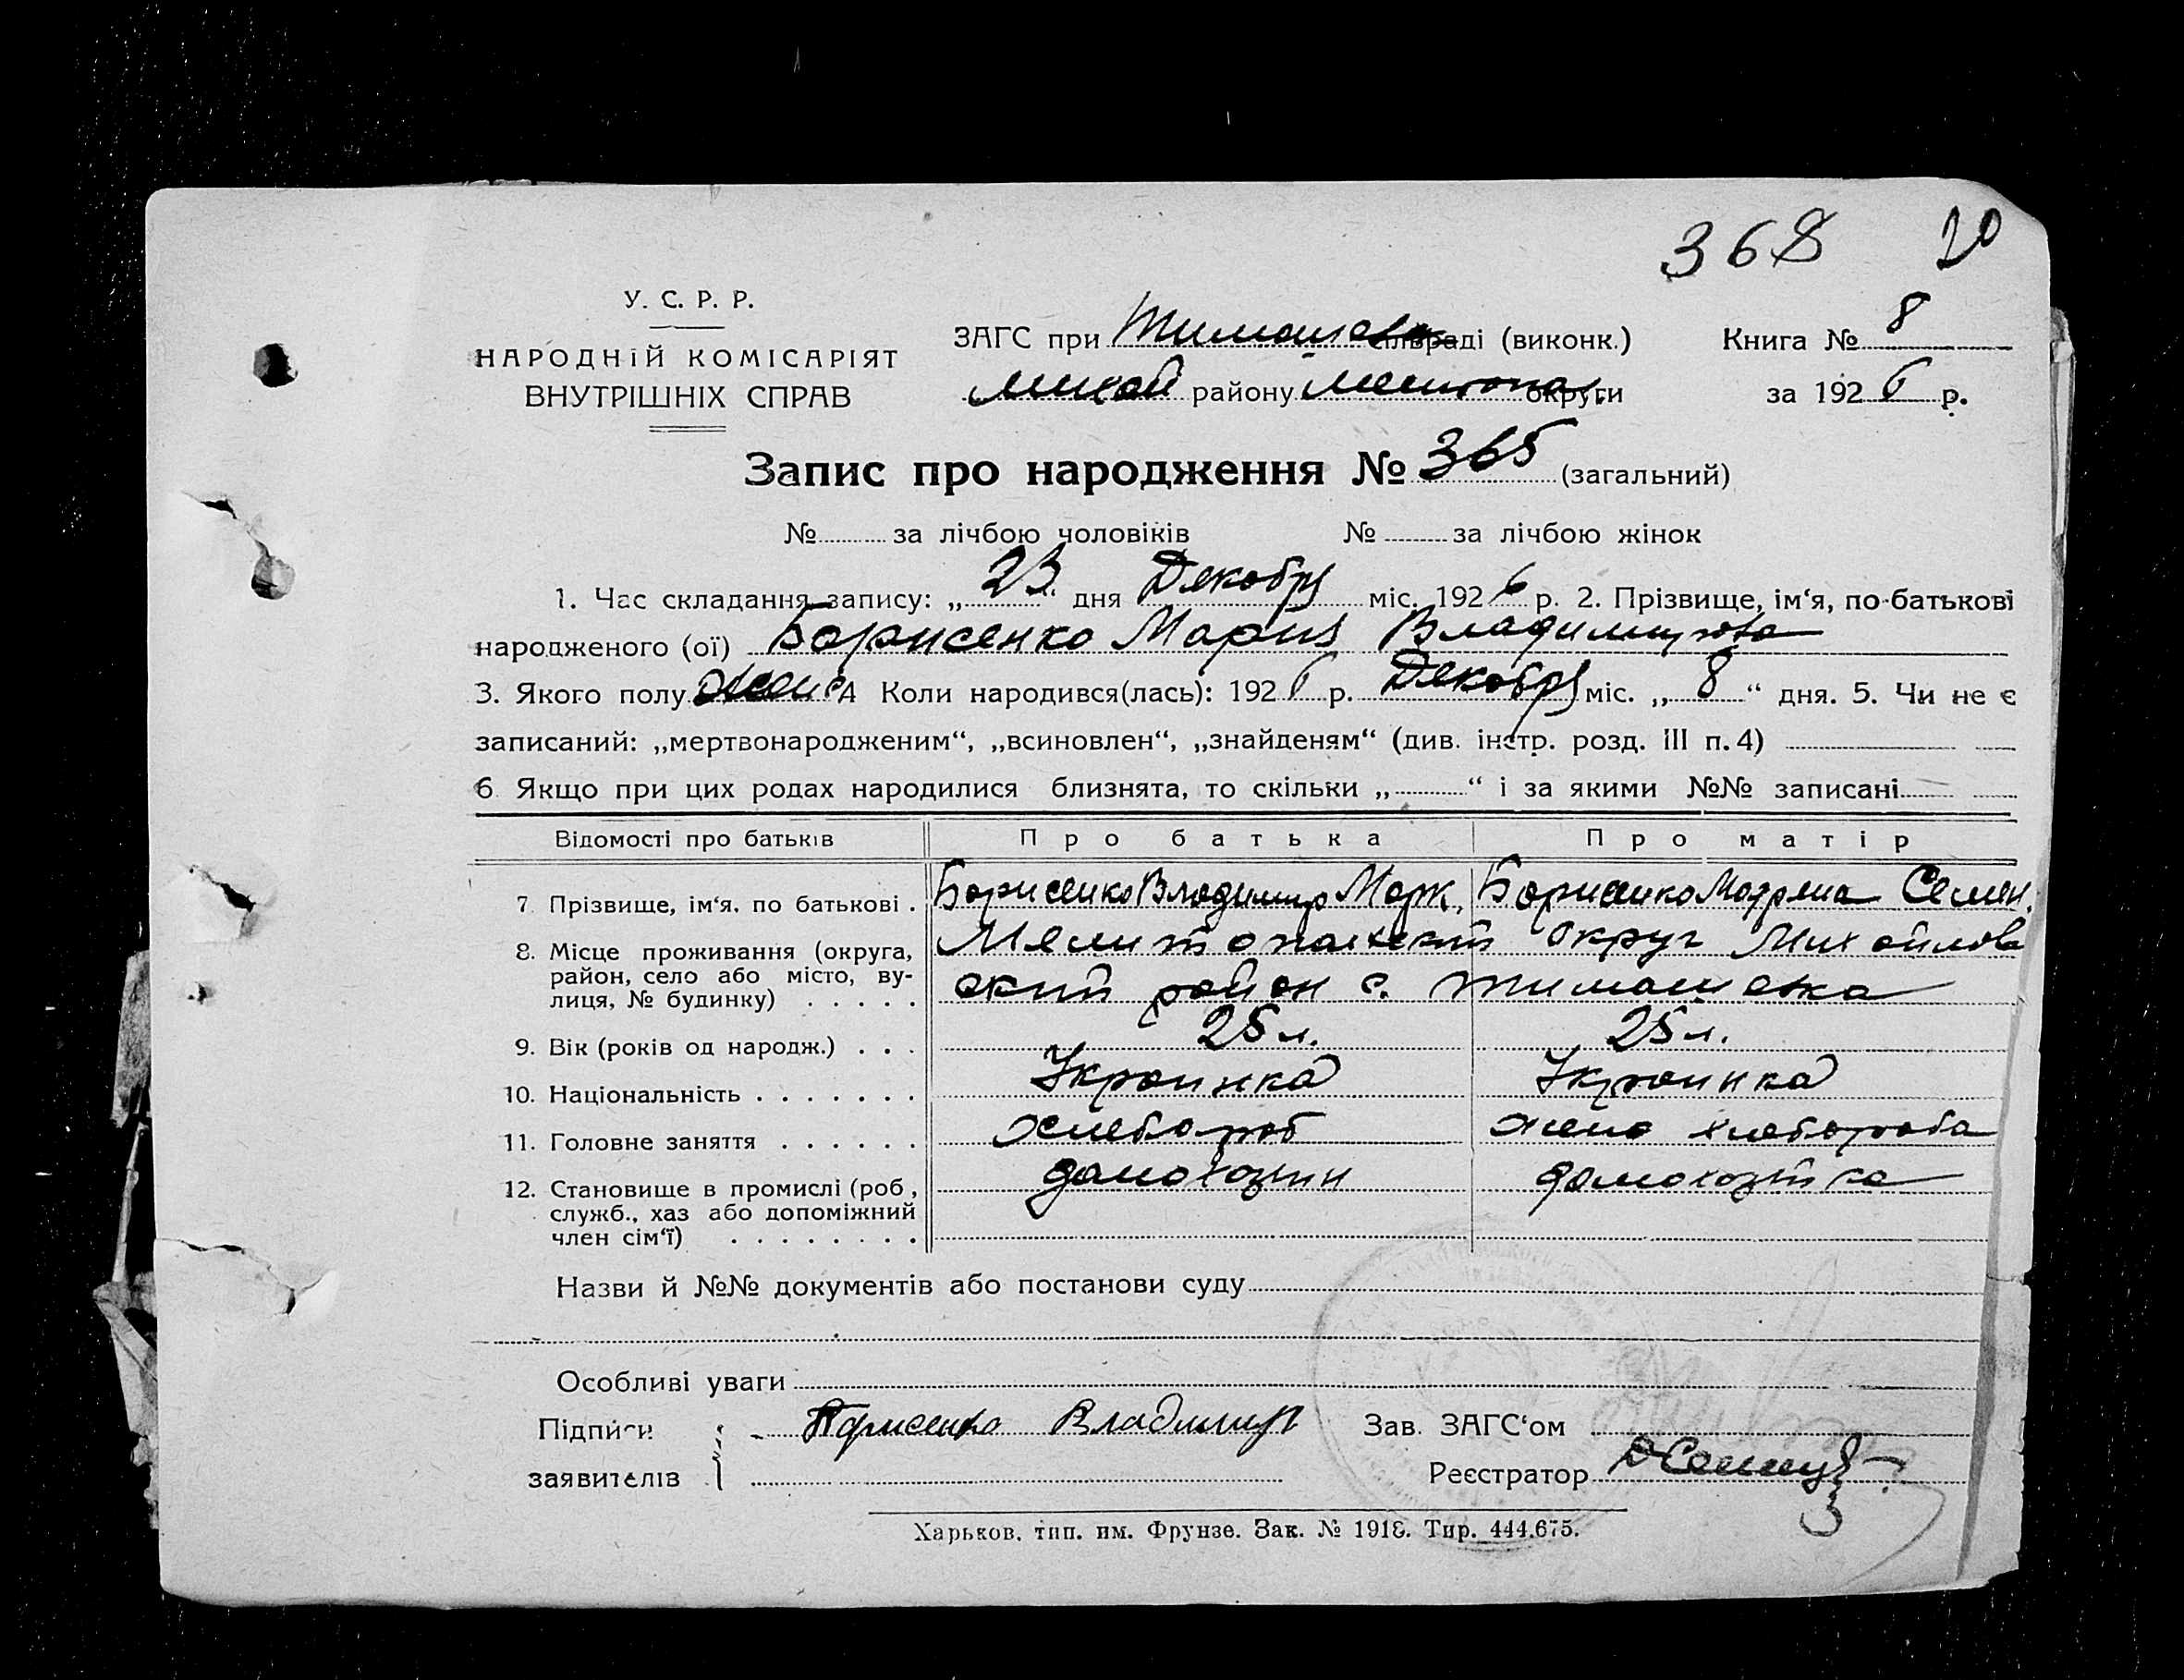 368 20
У. С. Р. Р.
НАРОДНІЙ КОМІСАРІЯТ
ВНУТРІШНІХ СПРАВ
ЗАГС при Тимошев сільраді (виконк.)
Михай району Мелитопол округи
Книга № 8
за 1926 р.
Запис про народження № 365 (загальний)
№ за лічбою чоловіків № за лічбою жінок
1. Час складання запису: „23“ дня Декобря міс. 1926 р. 2. Прізвище, ім‘я, по-батькові
народженого (ої) Борисенко Мария Владимирова
3. Якого полу женс 4 Коли народився(лась): 1926 р. Декобря міс. „8“ дня. 5. Чи не є
записаний: „мертвонародженим“, „всиновлен“, „знайденям“ (див. інстр. розд. III п. 4)
6 Якщо при цих родах народилися близнята, то скільки „ “ і за якими №№ записані
Відомості про батьків Про батька Про матір
7. Прізвище, ім‘я, по батькові . Борисенко Владимир Марк. Борисенко Мотрена Семен.
8. Місце проживання (округа, Мелитопольский округ Михайлов
район, село або місто, ву-
лиця, № будинку) . . . . . ский район с. Тимошовка
9. Вік (років од народж.) . . . 25 л. 25 л.
10. Національність . . . . . . . Украинка Украинка
11. Головне заняття . . . . . . хлебороб жена хлебороба
12. Становище в промислі (роб., домохозяин домохозяйка
служб., хаз або допоміжний
член сім‘ї) . . . . . . . .
Назви й №№ документів або постанови суду
Особливі уваги
Підписи Борисенко Владимир Зав. ЗАГС‘ом
заявителів Реєстратор
Харьков, тип. им. Фрунзе. Зак. № 1918. Тир. 444.675.